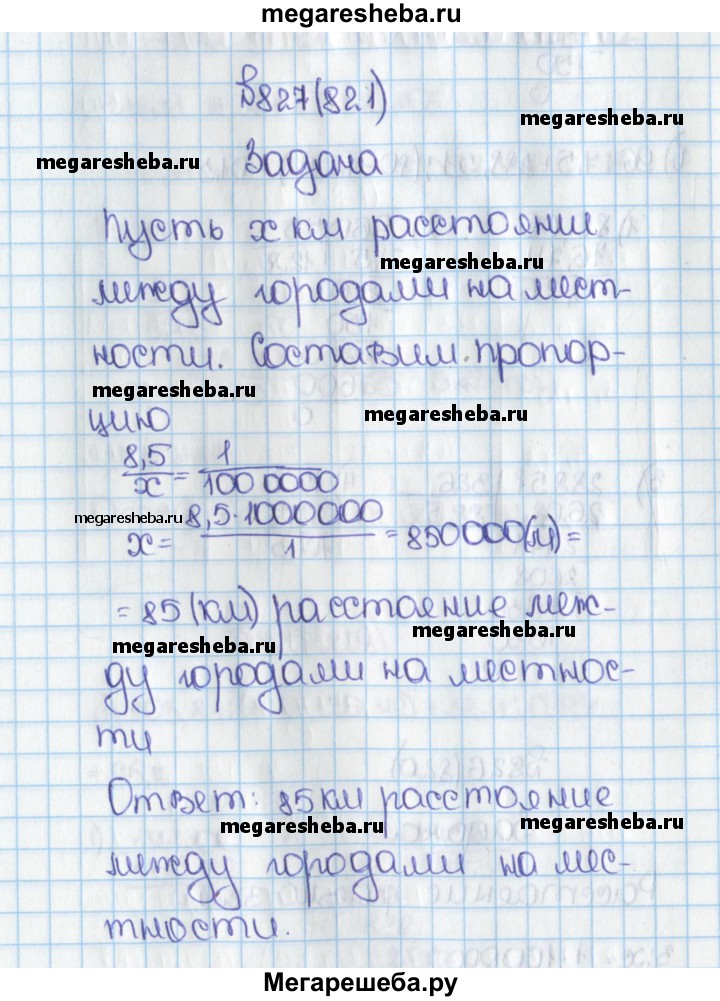 megaresheba.ru
№827(821)
megaresheba.ru
megaresheba.ru
Задача
Пусть x км расстояние
megaresheba.ru
между городами на мест-
ности. Составим пропор-
megaresheba.ru
megaresheba.ru
цию
8,5/x = 1/1000000
megaresheba.ru
x = 8,5·1000000/1 = 850000(м) =
= 85 (км) расстояние меж-
megaresheba.ru
megaresheba.ru
ду городами на местнос-
ти
megaresheba.ru
Ответ: 85 км расстояние
megaresheba.ru
megaresheba.ru
между городами на мес-
тности.
Мегарешеба.ру